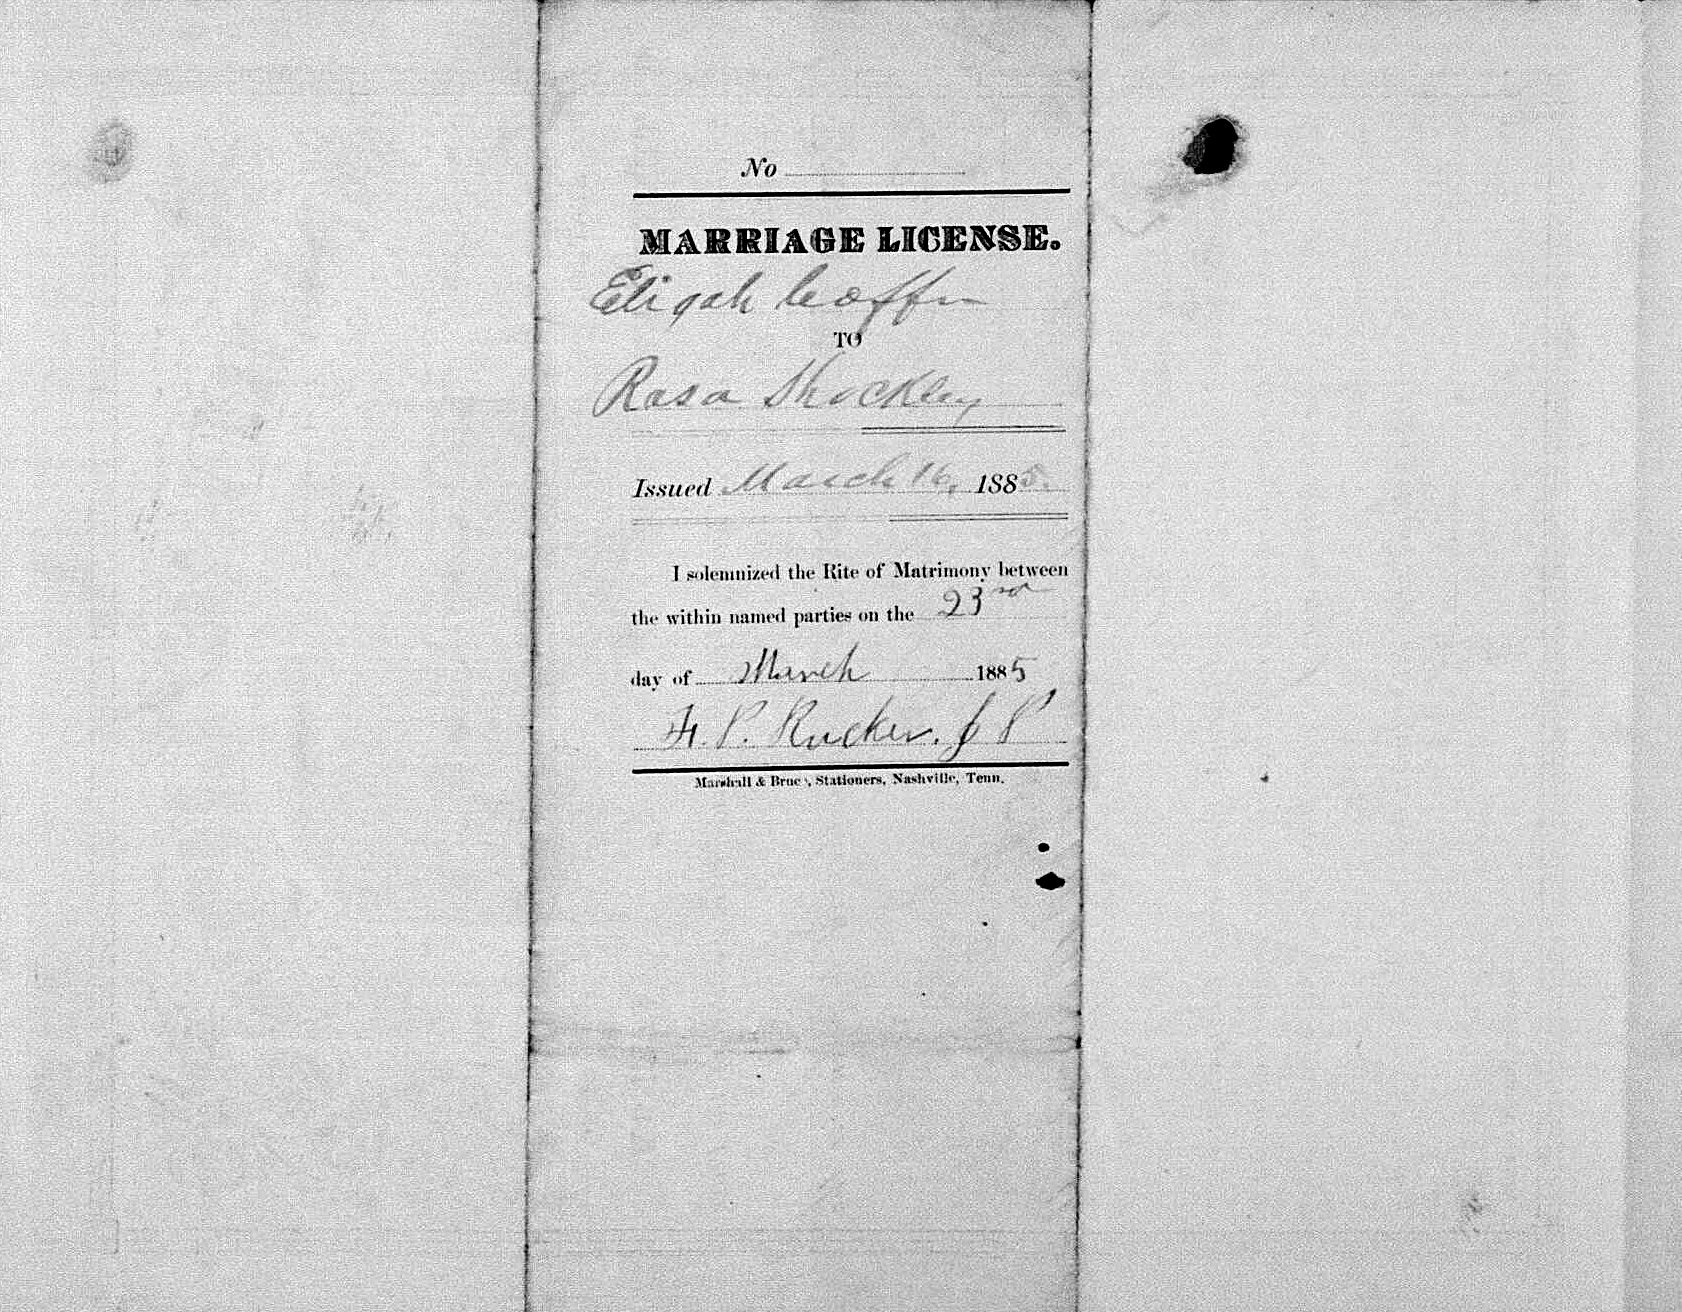 No
MARRIAGE LICENSE.
Eligah Coffin
TO
Rosa Shockley
Issued March 16, 1885.
I solemnized the Rite of Matrimony between
the within named parties on the 23rd
day of March 1885
H. P. Rucker. J P
Marshall & Bruce, Stationers, Nashville, Tenn.